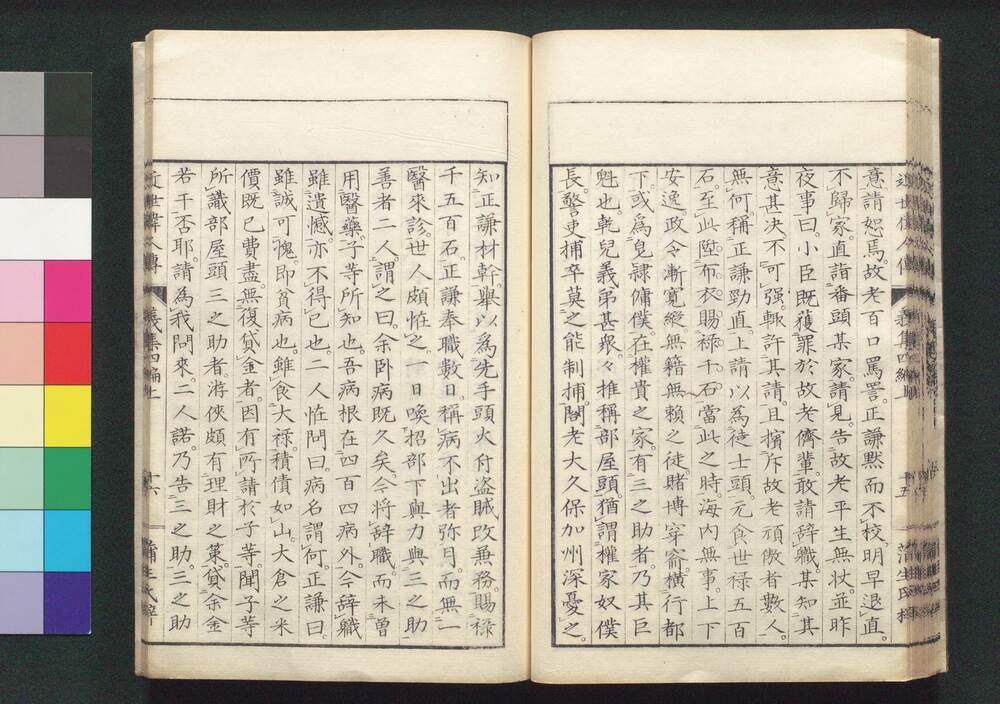 意請恕焉。故老百口罵詈。正謙黙而不校。明早退直。
不歸家。直詣番頭某家請見。告故老平生無状。並昨
夜事曰。小臣既獲罪於故老儕輩。敢請辞職。某知其
意甚决不可强。輙許其請。且擯斥故老頑傲者數人。
無何。稱正謙勁直。上請以為徒士頭。元食世禄五百
石。至此陞布衣。賜禄千石。當此之時。海内無事。上下
安逸。政令漸寛縱。無籍無賴之徒。賭博穿窬。横行都
下。或為皃隷傭僕。在權貴之家。有三之助者。乃其巨
魁也。乾兒義弟甚衆。々推稱部屋頭。猶謂權家奴僕
長。警吏捕卒莫之能制捕。閣老大久保加州深憂之。
近世偉人傳
義集四編上
十五
蒲生氏梓
知正謙材幹。擧以為先手頭火付盗賊改兼務。賜禄
千五百石。正謙奉職數日。稱病不出者弥月。而無一
醫來診。世人頗恠之。一日喚招部下與力與三之助
善者二人。謂之曰。余卧病既久矣。今将辞職。而未曽
用醫藥。子等所知也。吾病根在四百四病外。今辞職
雖遺憾。亦不得已也。二人恠問曰。病名謂何。正謙曰。
雖誠可愧。即貧病也。雖食大禄。積債如山。大倉之米
價既已費盡。無復貸金者。因有所請於子等。聞子等
所識部屋頭三之助者。游侠頗有理財之策。貸余金
若干否耶。請為我問來。二人諾。乃告三之助。三之助
近世偉人傳
義集四編上
十六
蒲生氏梓